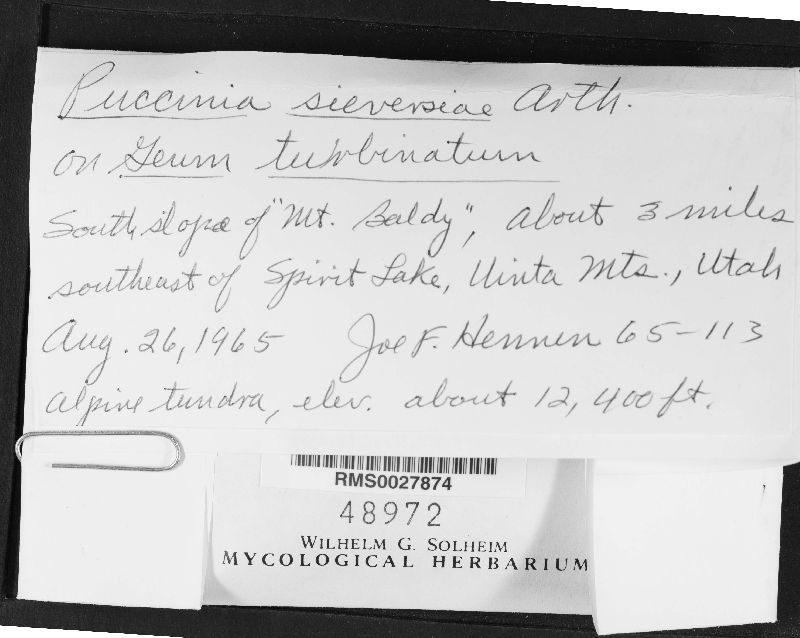 Puccinia sieversiae Arth.
on Geum turbinatum
South slope of "Mt. Baldy", about 3 miles
southeast of Spirit Lake, Uinta Mts., Utah
Aug. 26, 1965 Joe F. Hennen 65-113
alpine tundra, elev. about 12,400 ft.
RMS0027874
48972
WILHELM G. SOLHEIM
MYCOLOGICAL HERBARIUM